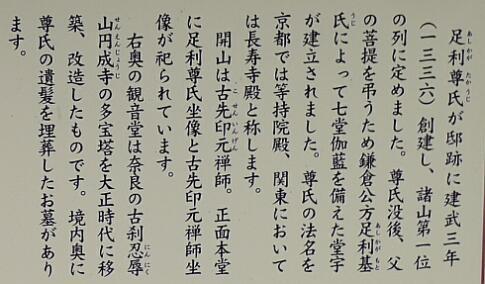 足利尊氏が邸跡に建武三年
（一三三六）創建し、諸山第一位
の列に定めました。尊氏没後、父
の菩提を弔うため鎌倉公方足利基
氏によって七堂伽藍を備えた堂宇
が建立されました。尊氏の法名を
京都では等持院殿、関東において
は長寿寺殿と称します。
開山は古先印元禅師。正面本堂
に足利尊氏坐像と古先印元禅師坐
像が祀られています。
右奥の観音堂は奈良の古刹忍辱
山円成寺の多宝塔を大正時代に移
築、改造したものです。境内奥に
尊氏の遺髪を埋葬したお墓があり
ます。